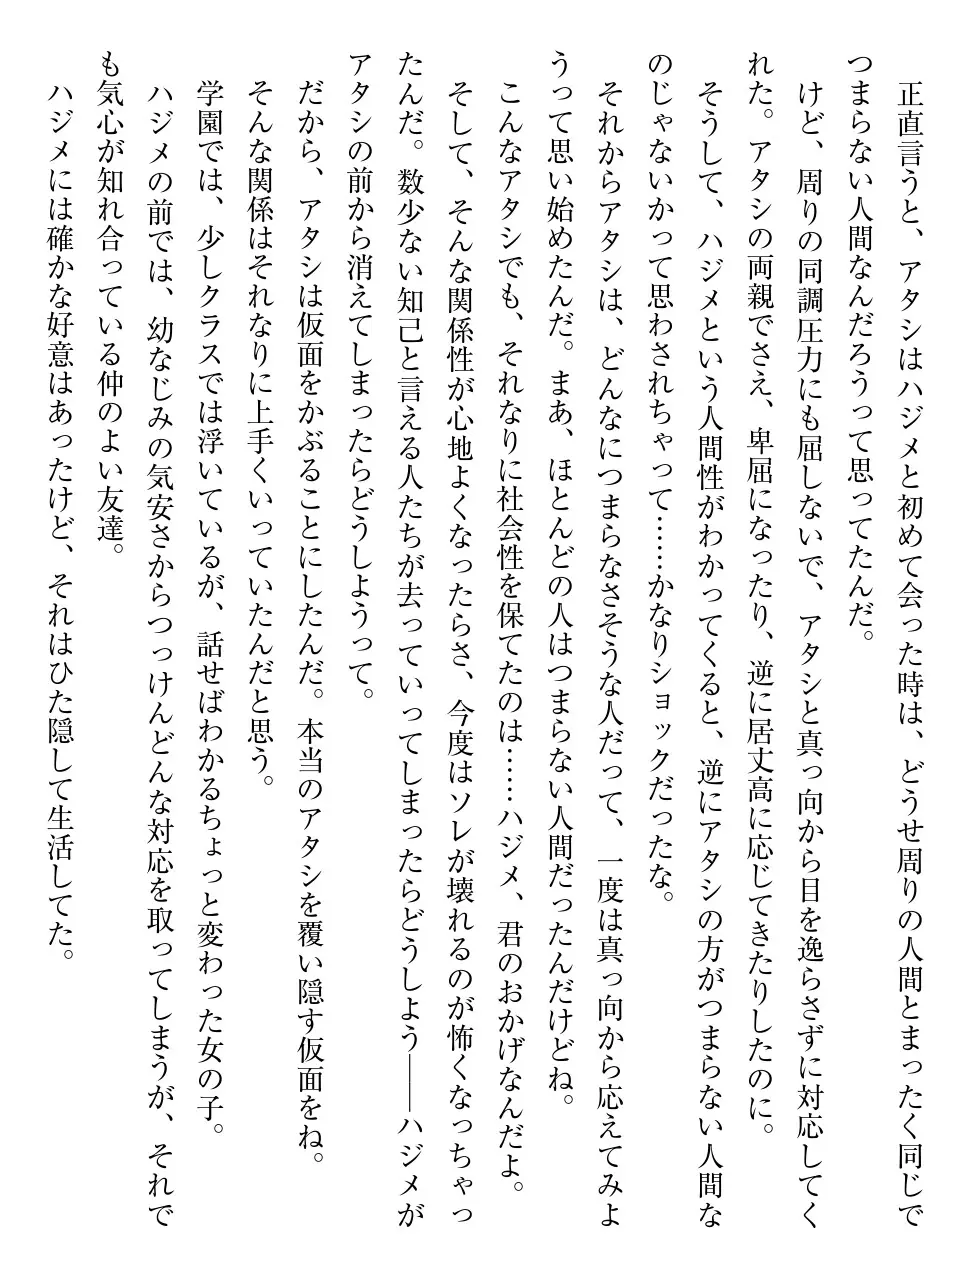 正直言うと、アタシはハジメと初めて会った時は、どうせ周りの人間とまったく同じで
つまらない人間なんだろうって思ってたんだ。
けど、周りの同調圧力にも屈しないで、アタシと真っ向から目を逸らさずに対応してく
れた。アタシの両親でさえ、卑屈になったり、逆に居丈高に応じてきたりしたのに。
そうして、ハジメという人間性がわかってくると、逆にアタシの方がつまらない人間な
のじゃないかって思わされちゃって……かなりショックだったな。
それからアタシは、どんなにつまらなさそうな人だって、一度は真っ向から応えてみよ
うって思い始めたんだ。まあ、ほとんどの人はつまらない人間だったんだけどね。
こんなアタシでも、それなりに社会性を保てたのは……ハジメ、君のおかげなんだよ。
そして、そんな関係性が心地よくなったらさ、今度はソレが壊れるのが怖くなっちゃっ
たんだ。数少ない知己と言える人たちが去っていってしまったらどうしよう――ハジメが
アタシの前から消えてしまったらどうしようって。
だから、アタシは仮面をかぶることにしたんだ。本当のアタシを覆い隠す仮面をね。
そんな関係はそれなりに上手くいっていたんだと思う。
学園では、少しクラスでは浮いているが、話せばわかるちょっと変わった女の子。
ハジメの前では、幼なじみの気安さからつっけんどんな対応を取ってしまうが、それで
も気心が知れ合っている仲のよい友達。
ハジメには確かな好意はあったけど、それはひた隠して生活してた。